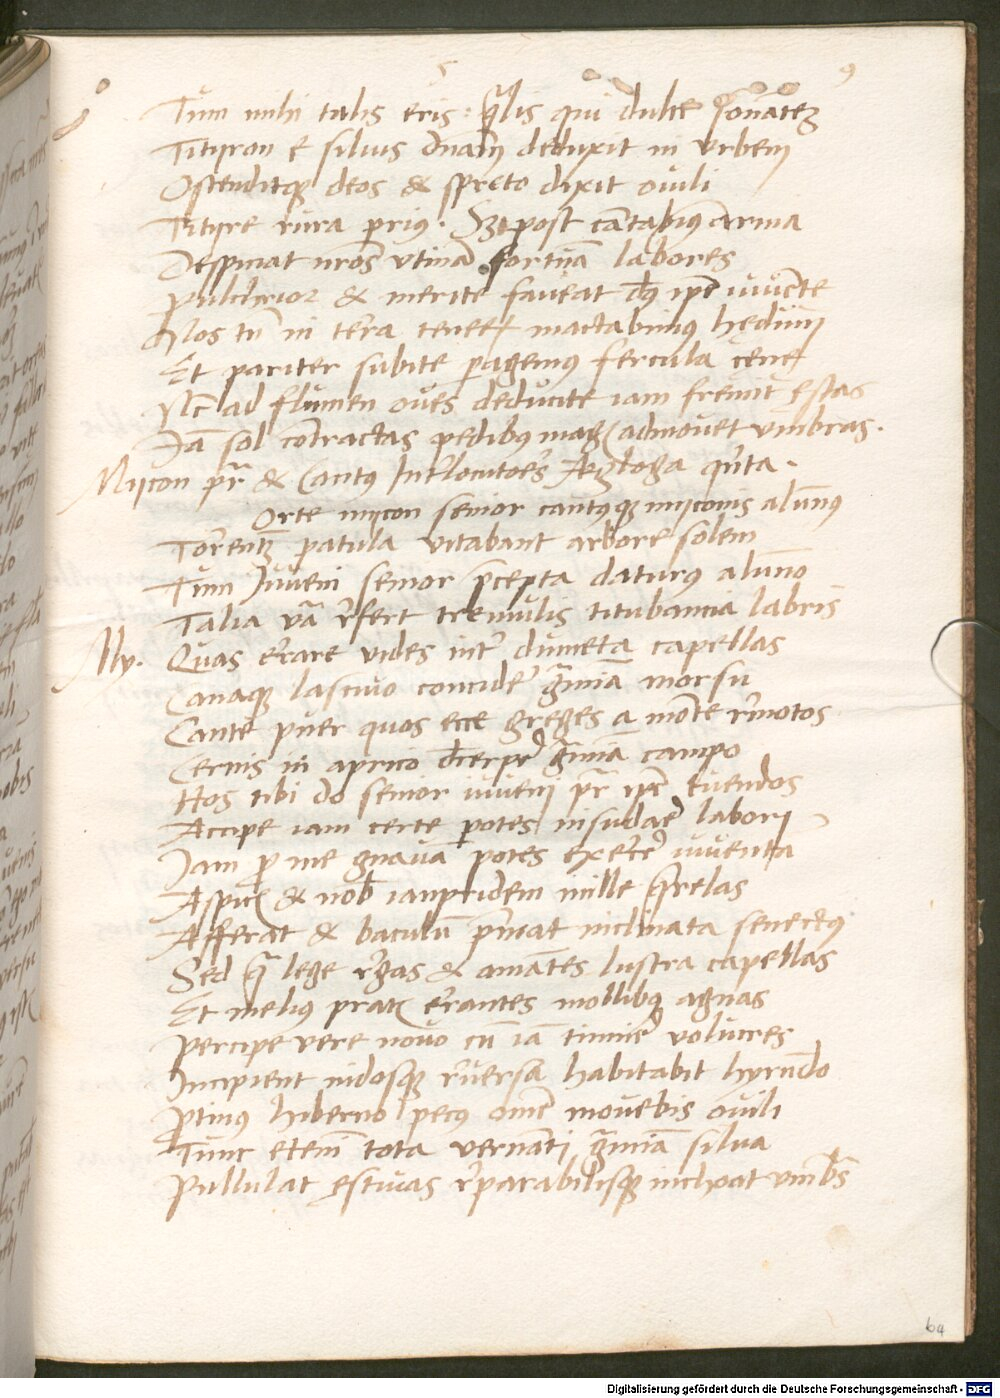 5 9
Tum mihi talis eris: q̃lis qui dulce sonatẽ
Tityron e siluis dñam deduxit in vrbem
Ostenditqȝ deos & spreto dixit ouili
Tityre rura prius. Sȝ post cantabimus arma
Despiciat nr̃os vtinã fortuna labores
Pulchrior & merite faueat dũ ipse iuuente
Nos tñ in terra tenerũ mactabimus hędum
Et pariter subite peragemus fercula cęne
Nc̃ ad flumen oues deducite iam fremit ęstas
Iã sol contractas pedibus magis admouet vmbras.
Mycon pr̃ & Cantus Int̃locutores Aegloga qũta.
Orte mycon senior cantusqȝ myconis alũnus
Torrentẽ patula vitabant arbore solem
Tum Iuueni senior p̃cepta daturus alũno
Talia vã rẽfert tremulis titubantia labris
My. Quas errare vides int̃ dumeta capellas
Canaqȝ lasciuo concider̃ g̃minã morsu
Cante puer quos ecce greges a mõte remotos
Cernis in aprico dec̃erpẽ g̃minã campo
Hos tibi do senior iuueni pr̃ ipse tuendos
Accipe iam certe potes insudare labori
Iam p me gnauã potes exercẽ iuuentã
Aspicis & nob̃ iampridem mille q̃relas
Afferat & baculũ p̃mat inclinata senectus
Sed q̃ lege regas & amãtes lustra capellas
Et melius pratis errantes mollibus agnas
Percipe vere nouo cũ iã tinnire volucres
Incipient nidosqȝ reuersa habitabit hyrũdo
P̃tinus hiberno pecus omẽ mouebis ouili
Tunc etenĩ tota vernãti g̃minã silua
Pullulat ęstiuas reparabilisqȝ inchoat vmbr̃s
64
Digitalisierung gefördert durch die Deutsche Forschungsgemeinschaft - DFG